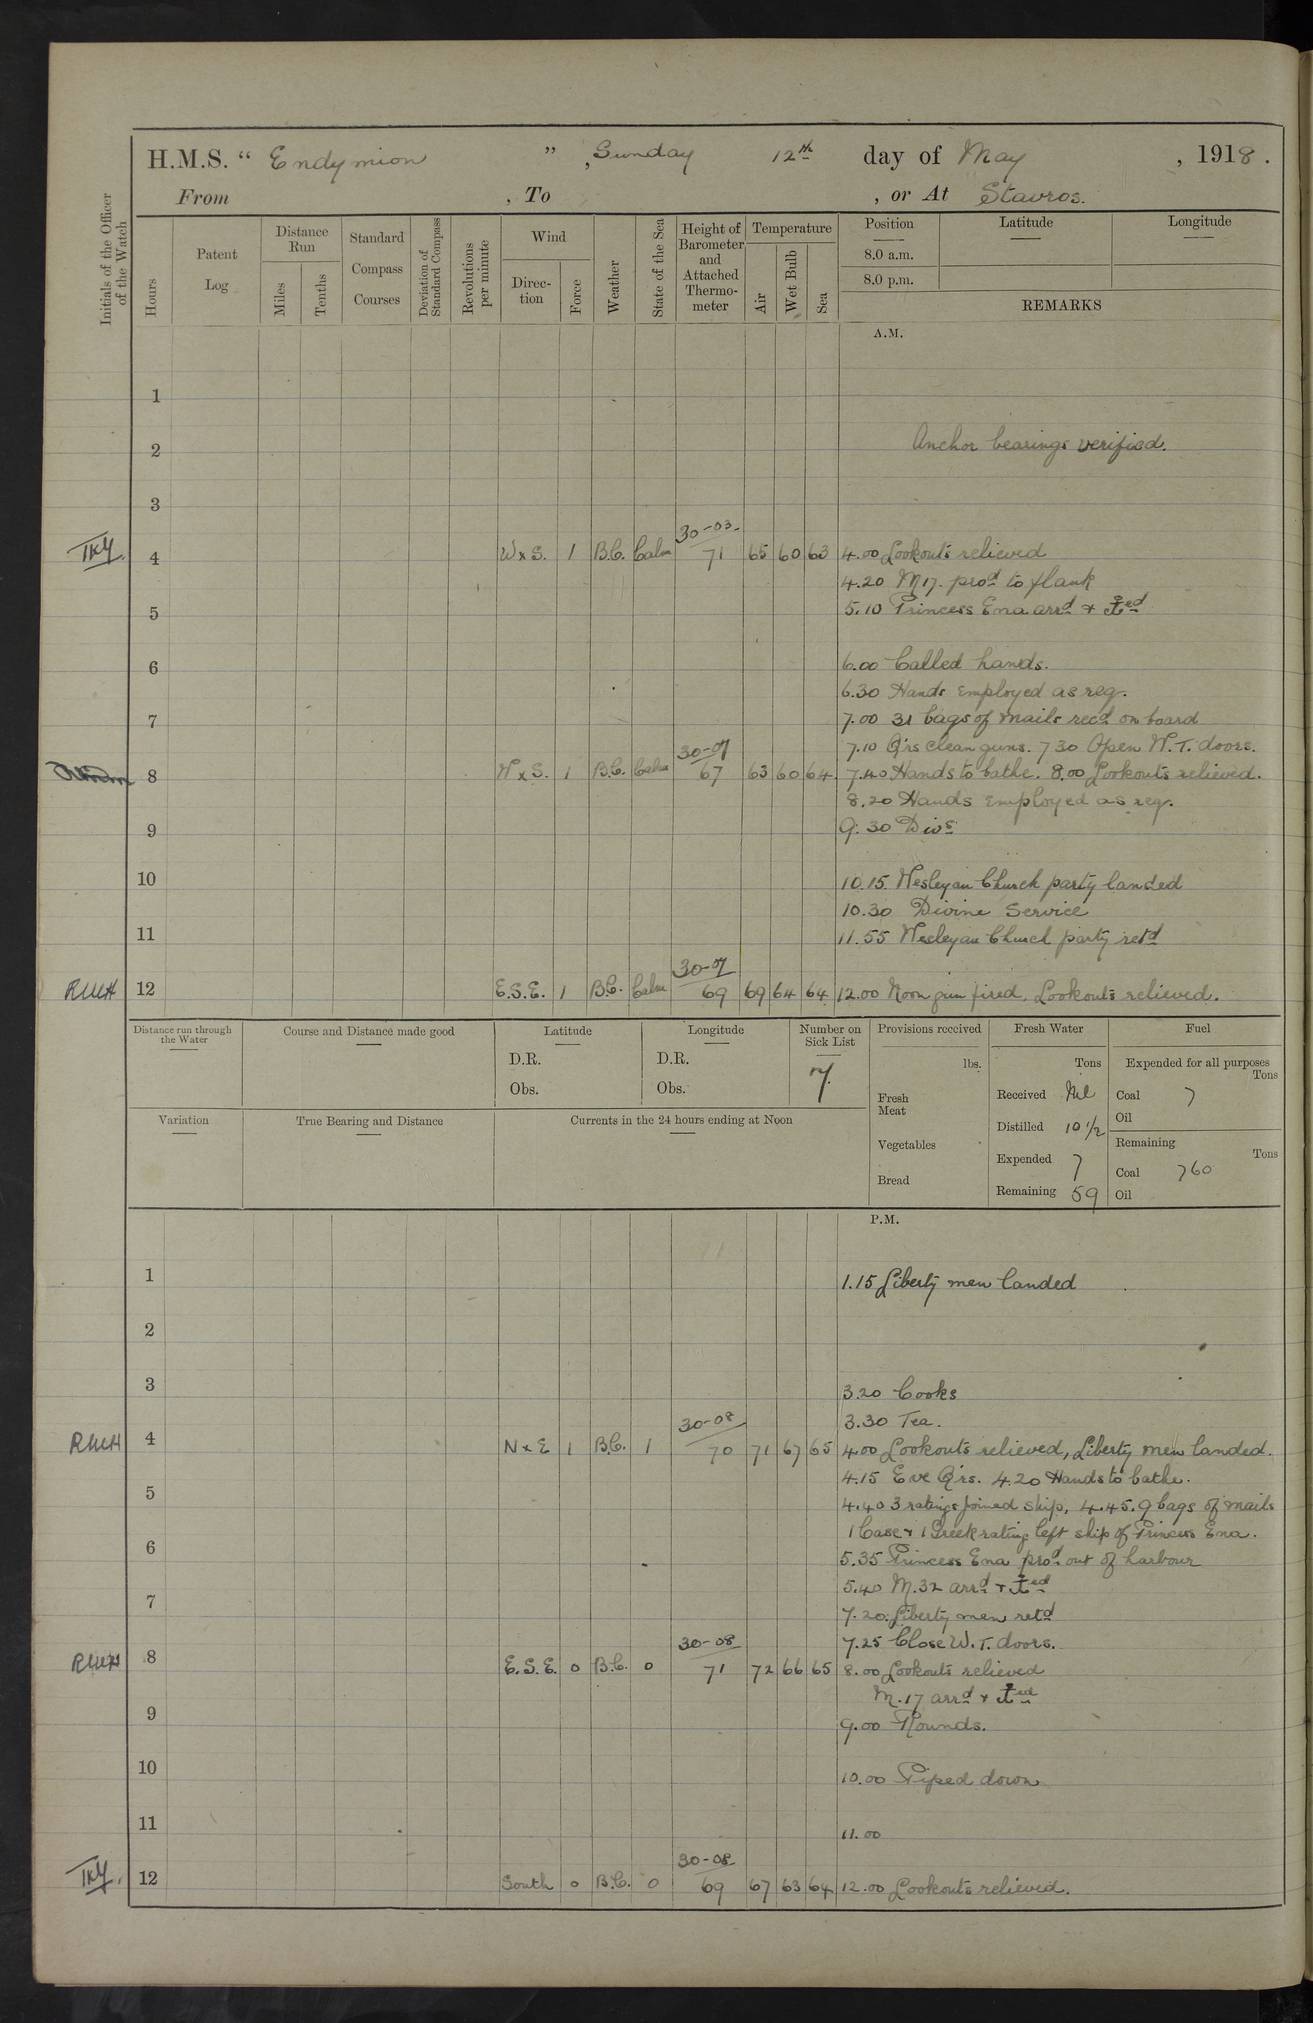 H.M.S. “ Endymion ” , Sunday 12th day of May , 1918 .
From , To , or At Stavros.
Initials of the Officer of the Watch
Hours
Patent Log
Distance Run
Miles
Tenths
Standard Compass Courses
Deviation of Standard Compass
Revolutions per minute
Wind
Direction
Force
Weather
State of the Sea
Height of Barometer and Attached Thermometer
Temperature
Air
Wet Bulb
Sea
Position Latitude Longitude
8.0 a.m.
8.0 p.m.
REMARKS
A.M.
1
2 Anchor bearings verified.
3
30-03
TKY 4 W x S. 1 B.C. Calm 71 65 60 63 4.00 Lookouts relieved
4.20 M17. prod to flank
5 5.10 Princess Ena arrd + ⚓ed
6 6.00 Called hands.
6.30 Hands employed as reg.
7 7.00 31 bags of mails recd on board
30-07 7.10 Qrs clean guns. 7 30 Open W.T. doors.
8 W x S. 1 B.C. Calm 67 63 60 64 7.40 Hands to bathe. 8.00 Lookouts relieved.
8.20 Hands employed as reg.
9 9.30 Divs
10 10.15 Wesleyan Church party landed
10.30 Divine Service
11 11.55 Wesleyan Church party retd
30-07
RWH 12 E.S.E. 1 B.C. Calm 69 69 64 64 12.00 Noon gun fired, Lookouts relieved.
Distance run through the Water
Course and Distance made good
Latitude
D.R.
Obs.
Longitude
D.R.
Obs.
Number on Sick List
7.
Provisions received
lbs.
Fresh Meat
Vegetables
Bread
Fresh Water
Tons
Received Nil
Distilled 10 1/2
Expended 7
Remaining 59
Fuel
Expended for all purposes
Tons
Coal 7
Oil
Remaining
Tons
Coal 760
Oil
Variation
True Bearing and Distance
Currents in the 24 hours ending at Noon
P.M.
1 1.15 Liberty men landed
2
3 3.20 Cooks
30-08 3.30 Tea.
RWH 4 N x E 1 B.C. 1 70 71 67 65 4.00 Lookouts relieved, Liberty men landed.
4.15 Eve Qrs. 4.20 Hands to bathe.
5 4.40 3 ratings joined ship, 4.45. 9 bags of mails
1 Case + 1 Greek rating left ship pf Princess Ena.
6 5.35 Princess Ena prod out of harbour
5.40 M.32 arrd + ⚓ed
7 7.20. Liberty men retd
30-08 7.25 Close W.T. doors.
RWH 8 E.S.E. 0 B.C. 0 71 72 66 65 8.00 Lookouts relieved
M.17 arrd + ⚓ed
9 9.00 Rounds.
10 10.00 Piped down
11 11.00
30-08
TKY. 12 South 0 B.C. 0 69 67 63 64 12.00 Lookouts relieved.